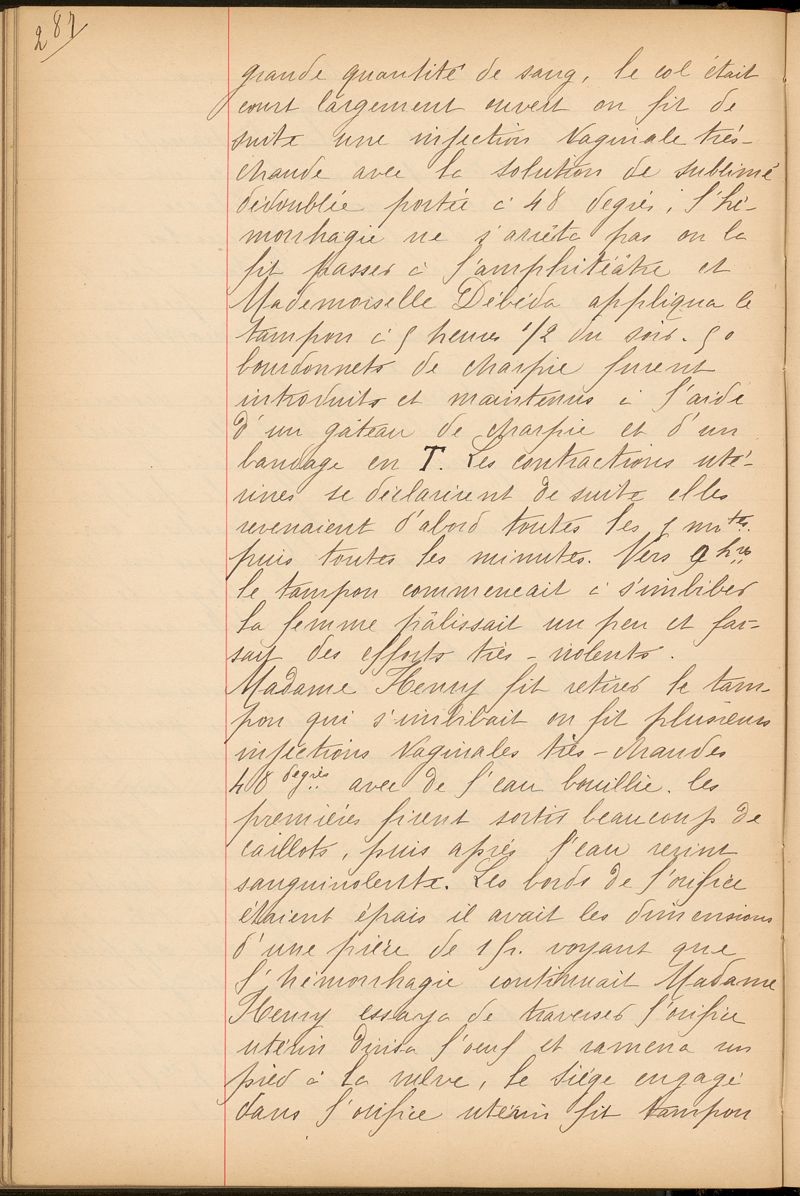 287
grande quantité de sang, le col était
court largement ouvert on fit de
suite une injection vaginale très-
chaude avec la solution de sublimé
dédoublée portée à 48 degrés ; l'hé-
morrhagie ne s'arrêta pas on la
fit passer à l'amphitéâtre et
Mademoiselle Débéda appliqua le
tampon à 5 heures 1/2 du soir. 50
bourdonnets de charpie furent
introduits et maintenus à l'aide
d'un gâteau de charpie et d'un
bandage en T. Les contractions uté-
rines se déclarèrent de suite elles
revenaient d'abord toutes les 5 mtes.
puis toutes les minutes. Vers 9 hres
le tampon commencait à s'imbiber
la femme pâlissait un peu et fai-
sait des efforts très-violents.
Madame Henry fit retirer le tam-
pon qui s'imbibait on fit plusieurs
injections vaginales très-chaudes
48 degrés avec de l'eau bouillie. les
premières firent sortir beaucoup de
caillots, puis après l'eau revint
sanguinolente. Les bords de l'orifice
étaient épais il avait les dimensions
d'une pièce de 1 fr. voyant que
l'hémorrhagie continuait Madame
Henry essaya de traverser l'orifice
utérin divisa l'oeuf et ramena un
pied à la vulve, le siége engagé
dans l'orifice utérin fit tampon